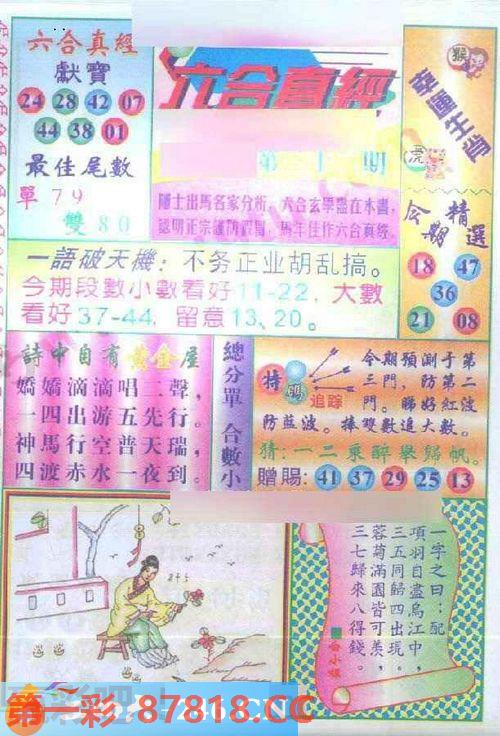 六合真經
獻寶
24 28 42 07
44 38 01
最佳尾數
單 79
雙 80
六合真經
第 十 期
隱士出馬名家分析，六合玄學盡在本書，
認明正宗謹防假冒，馬年佳作六合真經。
幸運生肖
猴
虎
今期精選
18 47
36
21 08
一語破天機：不务正业胡乱搞。
今期段數小數看好11-22，大數
看好37-44，留意13、20。
詩中自有黄金屋
嬌嬌滴滴唱二聲，
一四出游五先行。
神馬行空普天瑞，
四渡赤水一夜到。
總分單 合數小
特
碼
追踪
今期預測于第
三門，防第二
門。睇好紅波
防蓝波。捧雙數追大數。
猜：一二乘醉舉歸帆。
贈賜：41 37 29 25 13
一字之曰：配
項羽自盡烏江中，
三五同歸四出現。
蓉菊滿園皆可羨，
三七歸來八得錢。
第一彩 87818.CC